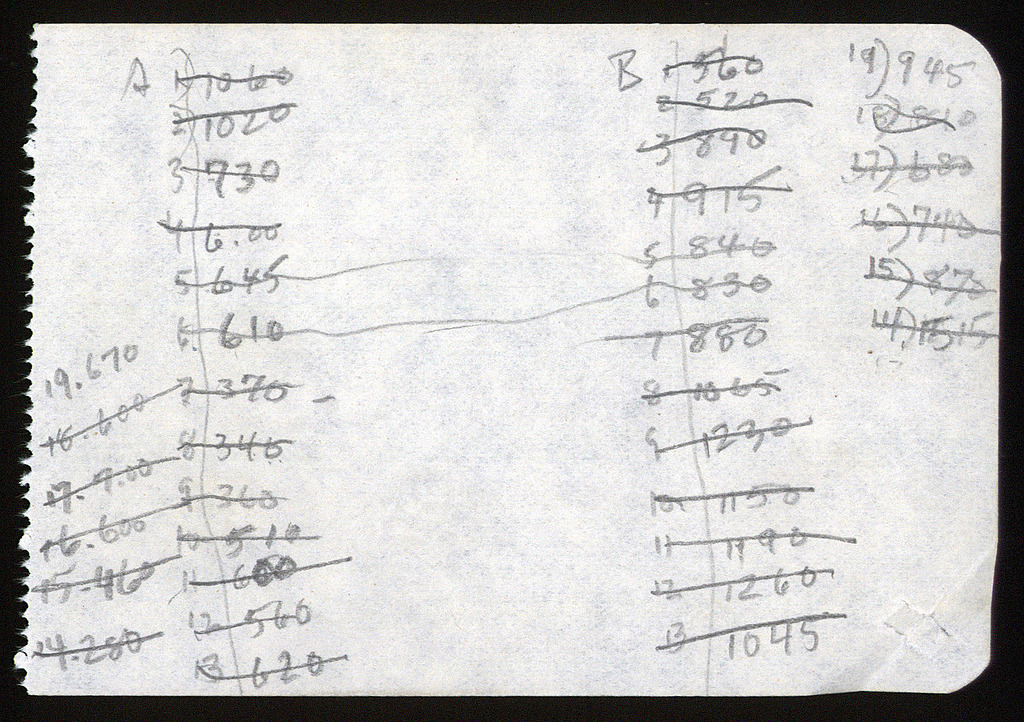 A 1 1060
2 1020
3 730
4 6.00
5 645
6. 610
7 370 -
8 340
9 360
10 510
11 600
12 560
13 620
19. 670
18. 600
17. 9.00
16. 600
15. 460
14. 280
B 1 560
2 520
3 890
4 915
5 840
6 830
7 880
8 1065
9 1230
10. 1150
11 1190
12 1260
13 1045
19) 945
17) 680
16) 740
15) 870
14) 1515